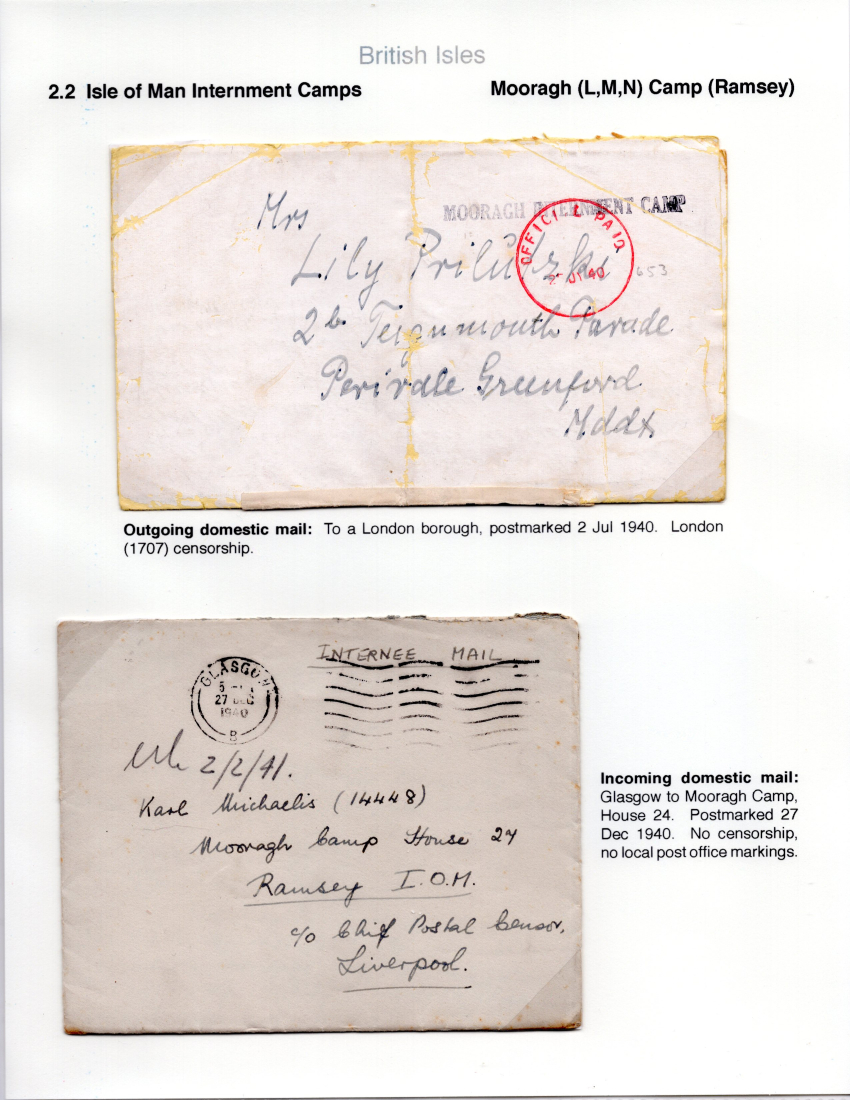 British Isles
2.2 Isle of Man Internment Camps
Mooragh (L,M,N) Camp (Ramsey)
MOORAGH INTERNMENT CAMP
OFFICIAL PAID
JY 40
653
Mrs
Lily Prilutzki
2b Teignmouth Parade
Perivale Greenford
Mddx
Outgoing domestic mail: To a London borough, postmarked 2 Jul 1940. London
(1707) censorship.
INTERNEE MAIL
GLASGOW
27 DEC
1940
B
2/2/41.
Karl Michaelis (14448)
Mooragh Camp House 24
Ramsey I.O.M.
c/o Chief Postal Censor,
Liverpool.
Incoming domestic mail:
Glasgow to Mooragh Camp,
House 24. Postmarked 27
Dec 1940. No censorship,
no local post office markings.